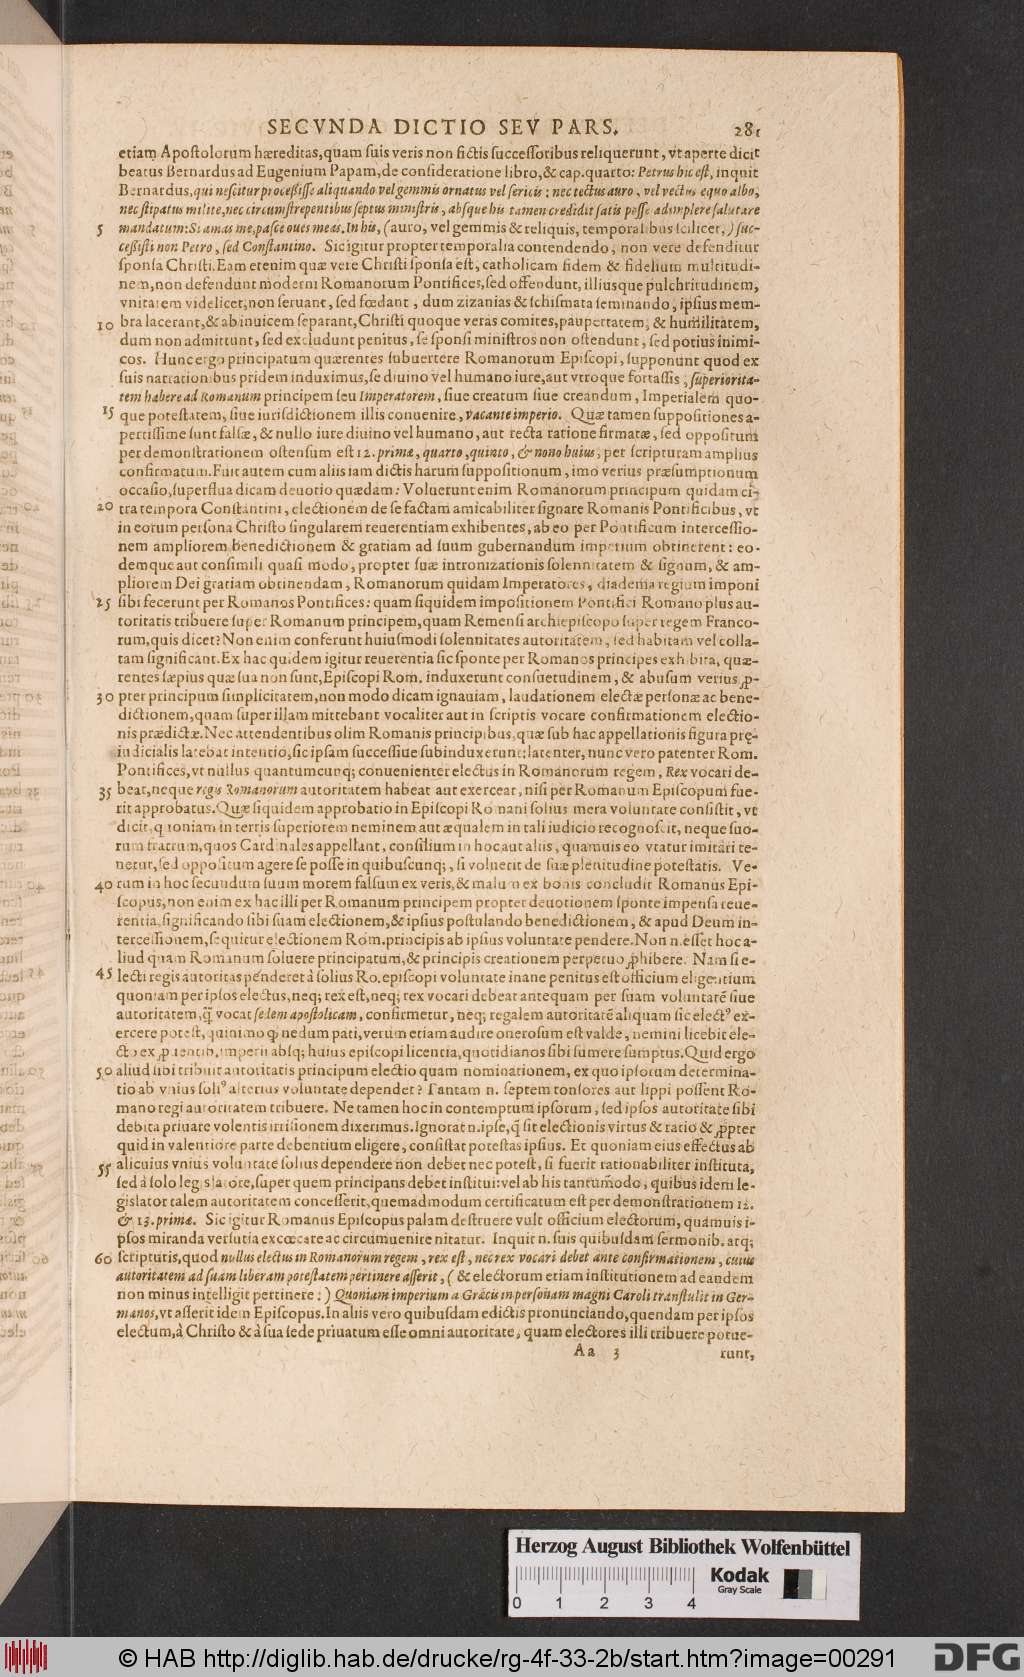 SECVNDA DICTIO SEV PARS. 281
etiam Apostolorum hæreditas, quam suis veris non fictis successoribus reliquerunt, vt aperte dicit
beatus Bernardus ad Eugenium Papam, de consideratione libro, & cap. quarto: Petrus hic est, inquit
Bernardus, qui nescitur processisse aliquando vel gemmis ornatus vel sericis: nec tectus auro, vel vectus equo albo,
nec stipatus milite, nec circumstrepentibus septus ministris, absque his tamen credidit satis posse adimplere salutare
5 mandatum: Si amas me, pasce oues meas. In his, (auro, vel gemmis & reliquis, temporalibus scilicet,) suc-
cessisti non Petro, sed Constantino. Sic igitur propter temporalia contendendo, non vere defenditur
sponsa Christi. Eam etenim quæ vere Christi sponsa est, catholicam fidem & fidelium multitudi-
nem, non defendunt moderni Romanorum Pontifices, sed offendunt, illiusque pulchritudinem,
vnitatem videlicet, non seruant, sed fœdant, dum zizanias & schismata seminando, ipsius mem-
10 bra lacerant, & ab inuicem separant, Christi quoque veras comites, paupertatem, & humilitatem,
dum non admittunt, sed excludunt penitus, se sponsi ministros non ostendunt, sed potius inimi-
cos. Hunc ergo principatum quærentes subuertere Romanorum Episcopi, supponunt quod ex
suis narrationibus pridem induximus, se diuino vel humano iure, aut vtroque fortassis, superiorita-
tem habere ad Romanum principem seu Imperatorem, siue creatum siue creandum, Imperialem quo-
15 que potestatem, siue iurisdictionem illis conuenire, vacante imperio. Quæ tamen suppositiones a-
pertissime sunt falsæ, & nullo iure diuino vel humano, aut recta ratione firmatæ, sed oppositum
per demonstrationem ostensum est 12. primæ, quarto, quinto, & nono huius, per scripturam amplius
confirmatum. Fuit autem cum aliis iam dictis harum suppositionum, imo verius præsumptionum
occasio, superflua dicam deuotio quædam: Voluerunt enim Romanorum principum quidam ci-
20 tra tempora Constantini, electionem de se factam amicabiliter signare Romanis Pontificibus, vt
in eorum persona Christo singularem reuerentiam exhibentes, ab eo per Pontificum intercessio-
nem ampliorem benedictionem & gratiam ad suum gubernandum imperium obtinerent: eo-
demque aut consimili quasi modo, propter suæ intronizationis solennitatem & signum, & am-
pliorem Dei gratiam obtinendam, Romanorum quidam Imperatores, diadema regium imponi
25 sibi fecerunt per Romanos Pontifices: quam siquidem impositionem Pontifici Romano plus au-
toritatis tribuere super Romanum principem, quam Remensi archiepiscopo super regem Franco-
rum, quis dicet? Non enim conferunt huiusmodi solennitates autoritatem, sed habitam vel colla-
tam significant. Ex hac quidem igitur reuerentia sic sponte per Romanos principes exhibita, quæ-
rentes sæpius quæ sua non sunt, Episcopi Rom. induxerunt consuetudinem, & abusum verius, ꝓ-
30 pter principum simplicitatem, non modo dicam ignauiam, laudationem electæ personæ ac bene-
dictionem, quam super illam mittebant vocaliter aut in scriptis vocare confirmationem electio-
nis prædictæ. Nec attendentibus olim Romanis principibus, quæ sub hac appellationis figura prę-
iudicialis latebat intentio, sic ipsam successiue subinduxerunt: latenter, nunc vero patenter Rom.
Pontifices, vt nullus quantumcunq; conuenienter electus in Romanorum regem, Rex vocari de-
35 beat, neque regis Romanorum autoritatem habeat aut exerceat, nisi per Romanum Episcopum fue-
rit approbatus. Quæ siquidem approbatio in Episcopi Romani solius mera voluntate consistit, vt
dicit, quoniam in terris superiorem neminem aut æqualem in tali iudicio recognoscit, neque suo-
rum fratrum, quos Cardinales appellant, consilium in hoc aut aliis, quamuis eo vtatur imitari te-
netur, sed oppositum agere se posse in quibuscunq;, si voluerit de suæ plenitudine potestatis. Ve-
40 rum in hoc secundum suum morem falsum ex veris, & malum ex bonis concludit Romanus Epi-
scopus, non enim ex hac illi per Romanum principem propter deuotionem sponte impensa reue-
rentia, significando sibi suam electionem, & ipsius postulando benedictionem, & apud Deum in-
tercessionem, sequitur electionem Rom. principis ab ipsius voluntate pendere. Non n. esset hoc a-
liud quam Romanum soluere principatum, & principis creationem perpetuo ꝓhibere. Nam si e-
45 lecti regis autoritas penderet à solius Ro. episcopi voluntate inane penitus est officium eligentium
quoniam per ipsos electus, neq; rex est, neq; rex vocari debeat antequam per suam voluntatē siue
autoritatem, q̃ vocat sedem apostolicam, confirmetur, neq; regalem autoritatē aliquam sic elect⁹ ex-
ercere potest, quinimo qɂ nedum pati, verum etiam audire onerosum est valde, nemini licebit ele-
cto ex ꝓuentib. imperii absq; huius episcopi licentia, quotidianos sibi sumere sumptus. Quid ergo
50 aliud sibi tribuit autoritatis principum electio quam nominationem, ex quo ipsorum determina-
tio ab vnius soli⁹ alterius voluntate dependet? Tantam n. septem tonsores aut lippi possent Ro-
mano regi autoritatem tribuere. Ne tamen hoc in contemptum ipsorum, sed ipsos autoritate sibi
debita priuare volentis irrisionem dixerimus. Ignorat n. ipse, q̃ sit electionis virtus & ratio & ꝓpter
quid in valentiore parte debentium eligere, consistat potestas ipsius. Et quoniam eius effectus ab
55 alicuius vnius voluntate solius dependere non debet nec potest, si fuerit rationabiliter instituta,
sed à solo legislatore, super quem principans debet institui: vel ab his tantummodo, quibus idem le-
gislator talem autoritatem concesserit, quemadmodum certificatum est per demonstrationem 12.
& 13. primæ. Sic igitur Romanus Episcopus palam destruere vult officium electorum, quamuis i-
psos miranda versutia excœcare ac circumuenire nitatur. Inquit n. suis quibusdam sermonib. atq;
60 scripturis, quod nullus electus in Romanorum regem, rex est, nec rex vocari debet ante confirmationem, cuius
autoritatem ad suam liberam potestatem pertinere asserit, (& electorum etiam institutionem ad eandem
non minus intelligit pertinere:) Quoniam imperium à Græcis in personam magni Caroli transtulit in Ger-
manos, vt asserit idem Episcopus. In aliis vero quibusdam edictis pronunciando, quendam per ipsos
electum, à Christo & à sua sede priuatum esse omni autoritate, quam electores illi tribuere potue-
Aa 3 runt,
Herzog August Bibliothek Wolfenbüttel
Kodak
Gray Scale
0 1 2 3 4
© HAB http://diglib.hab.de/drucke/rg-4f-33-2b/start.htm?image=00291
DFG